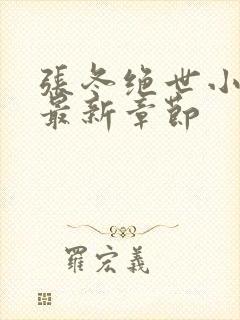 張冬绝世小
最新章節
羅宏義